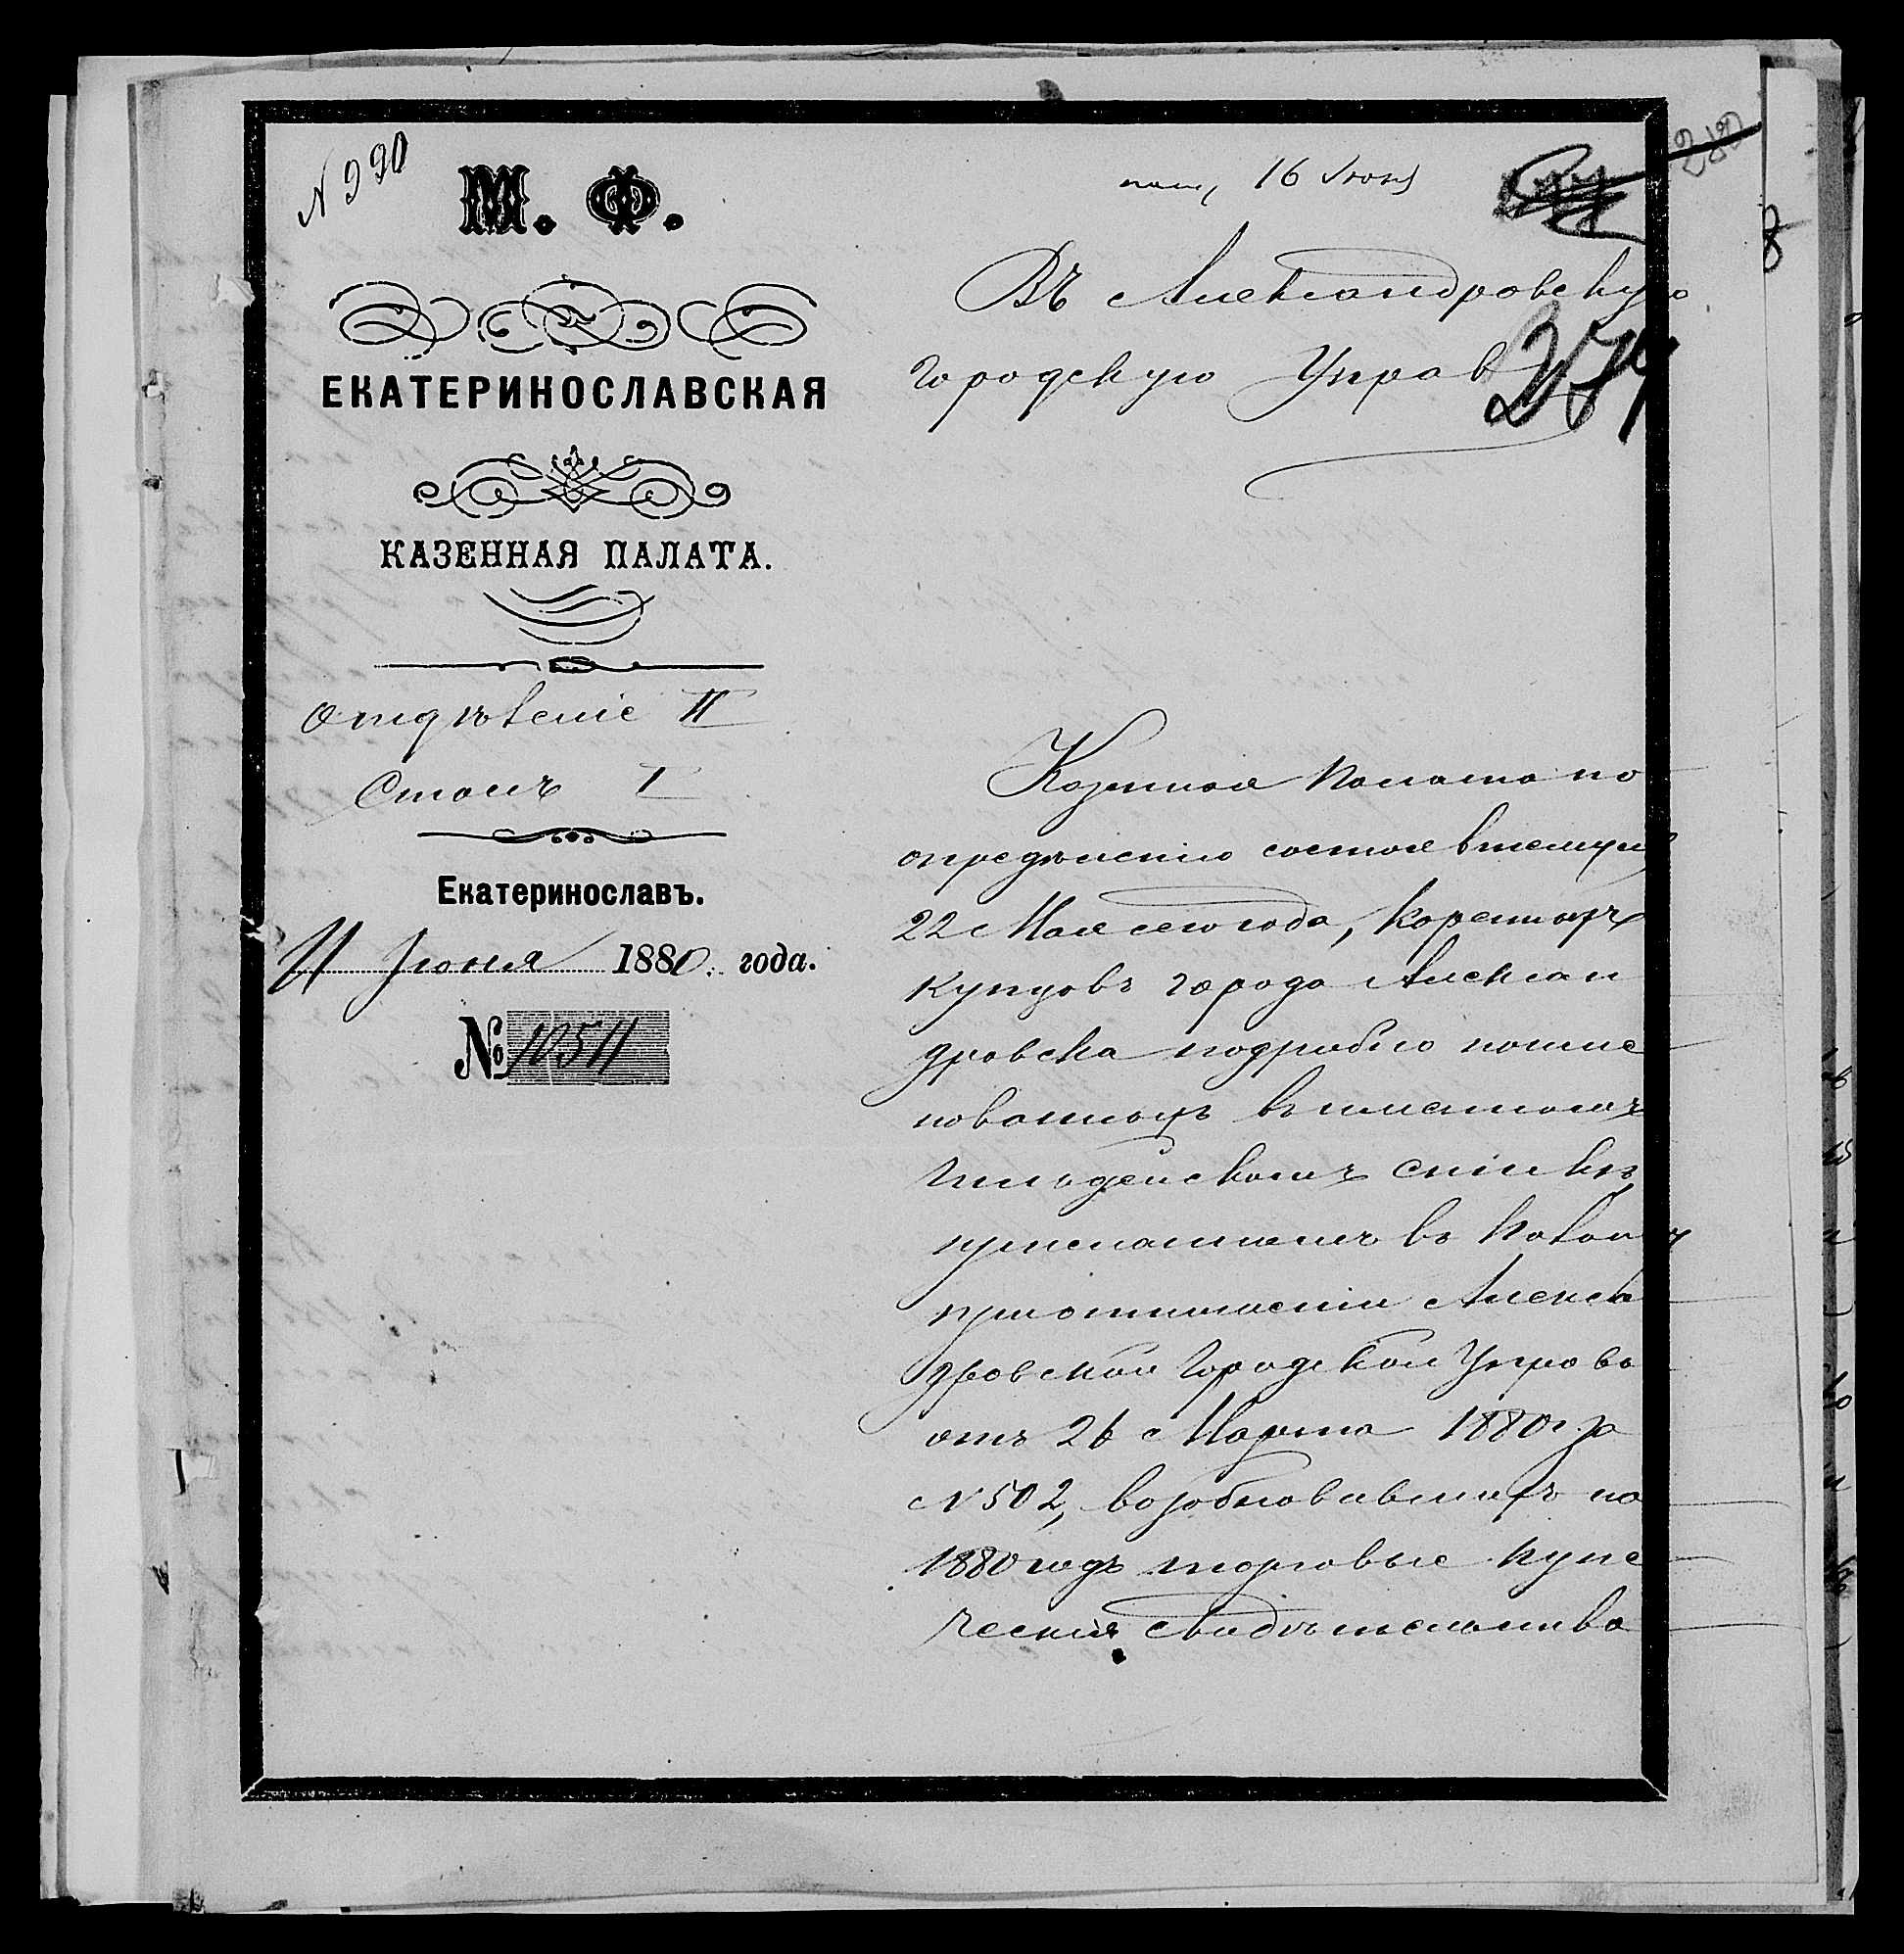 N 990
М. Ф.
ЕКАТЕРИНОСЛАВСКАЯ
КАЗЕННАЯ ПАЛАТА.
Отдѣленіе II
Столъ I
Екатеринославъ.
11 Іюня 1880. года.
№ 10511
280
8
16 Іюня
Въ Александровскую
городскую Управ
274
Казенная Палата по
опредѣленію состоявшемуся
22 Мая сего года, коренныхъ
купцовъ города Алексан
дровска подробно поиме
нованныхъ въ именномъ
гильдейскомъ спискѣ
присланномъ въ Палату
при отношеніи Алексан
дровской Городской Управы
отъ 26 Марта 1880 г. за
N 502, возобновившихъ на
1880 годъ торговые купе
ческія свидѣтельства